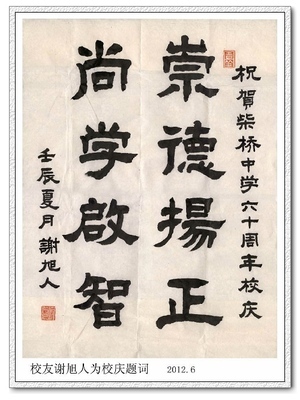 祝賀柴桥中学六十周年校庆
崇德揚正
尚学啟智
壬辰夏月謝旭人
校友谢旭人为校庆题词 2012.6